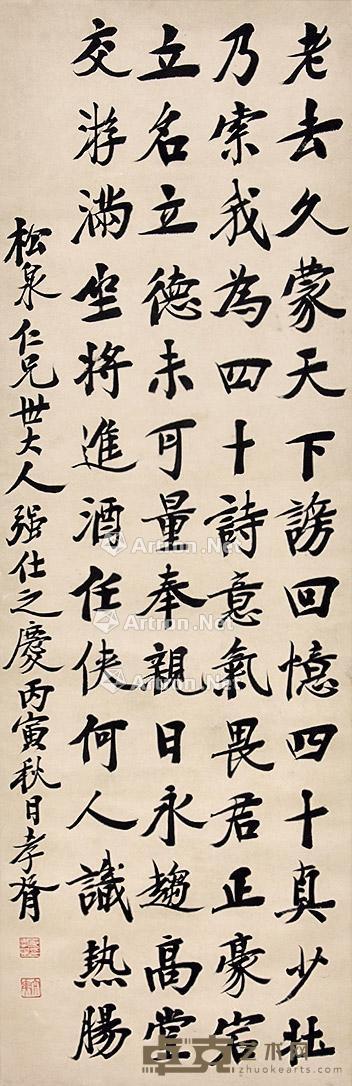 老去久蒙天下謗回憶四十真少壯
乃索我為四十詩意氣畏君正豪宕
立名立德未可量奉親日永趨高堂
交游滿坐將進酒任俠何人識熱腸
松泉仁兄世大人强仕之慶丙寅秋日孝胥
Artron.Net
Artron.Net
Artron.Net
Artron.Net
卓克艺术网
zhuokearts.com